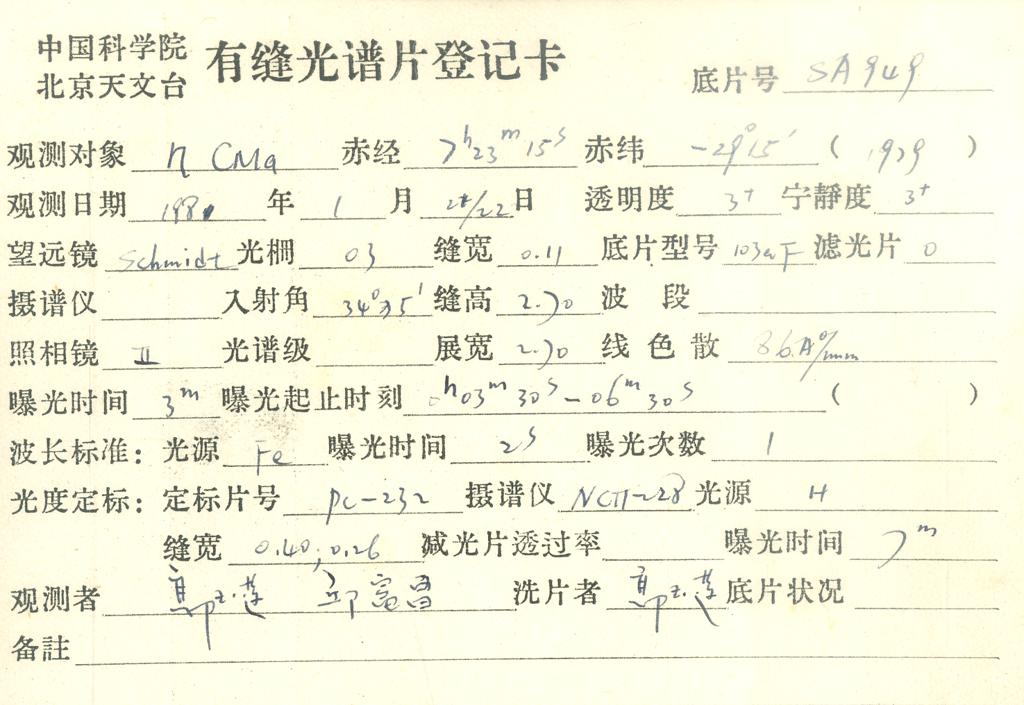 中国科学院
北京天文台
有缝光谱片登记卡
底片号 SA949
观测对象 η CMa 赤经 7h23m15s 赤纬 -29°15′ ( 1979 )
观测日期 198 年 1 月 21/22日 透明度 3+ 宁静度 3+
望远镜 Schmidt 光栅 03 缝宽 0.11 底片型号 103aF 滤光片 0
摄谱仪 入射角 34°35′ 缝高 2.70 波段
照相镜 II 光谱级 展宽 2.70 线色散 86A°/mm
曝光时间 3m 曝光起止时刻 0h03m30s-06m30s ( )
波长标准: 光源 Fe 曝光时间 2s 曝光次数 1
光度定标: 定标片号 PC-232 摄谱仪 光源 H
缝宽 0.40;0.26 减光片透过率 曝光时间 7m
观测者 洗片者 底片状况
备註